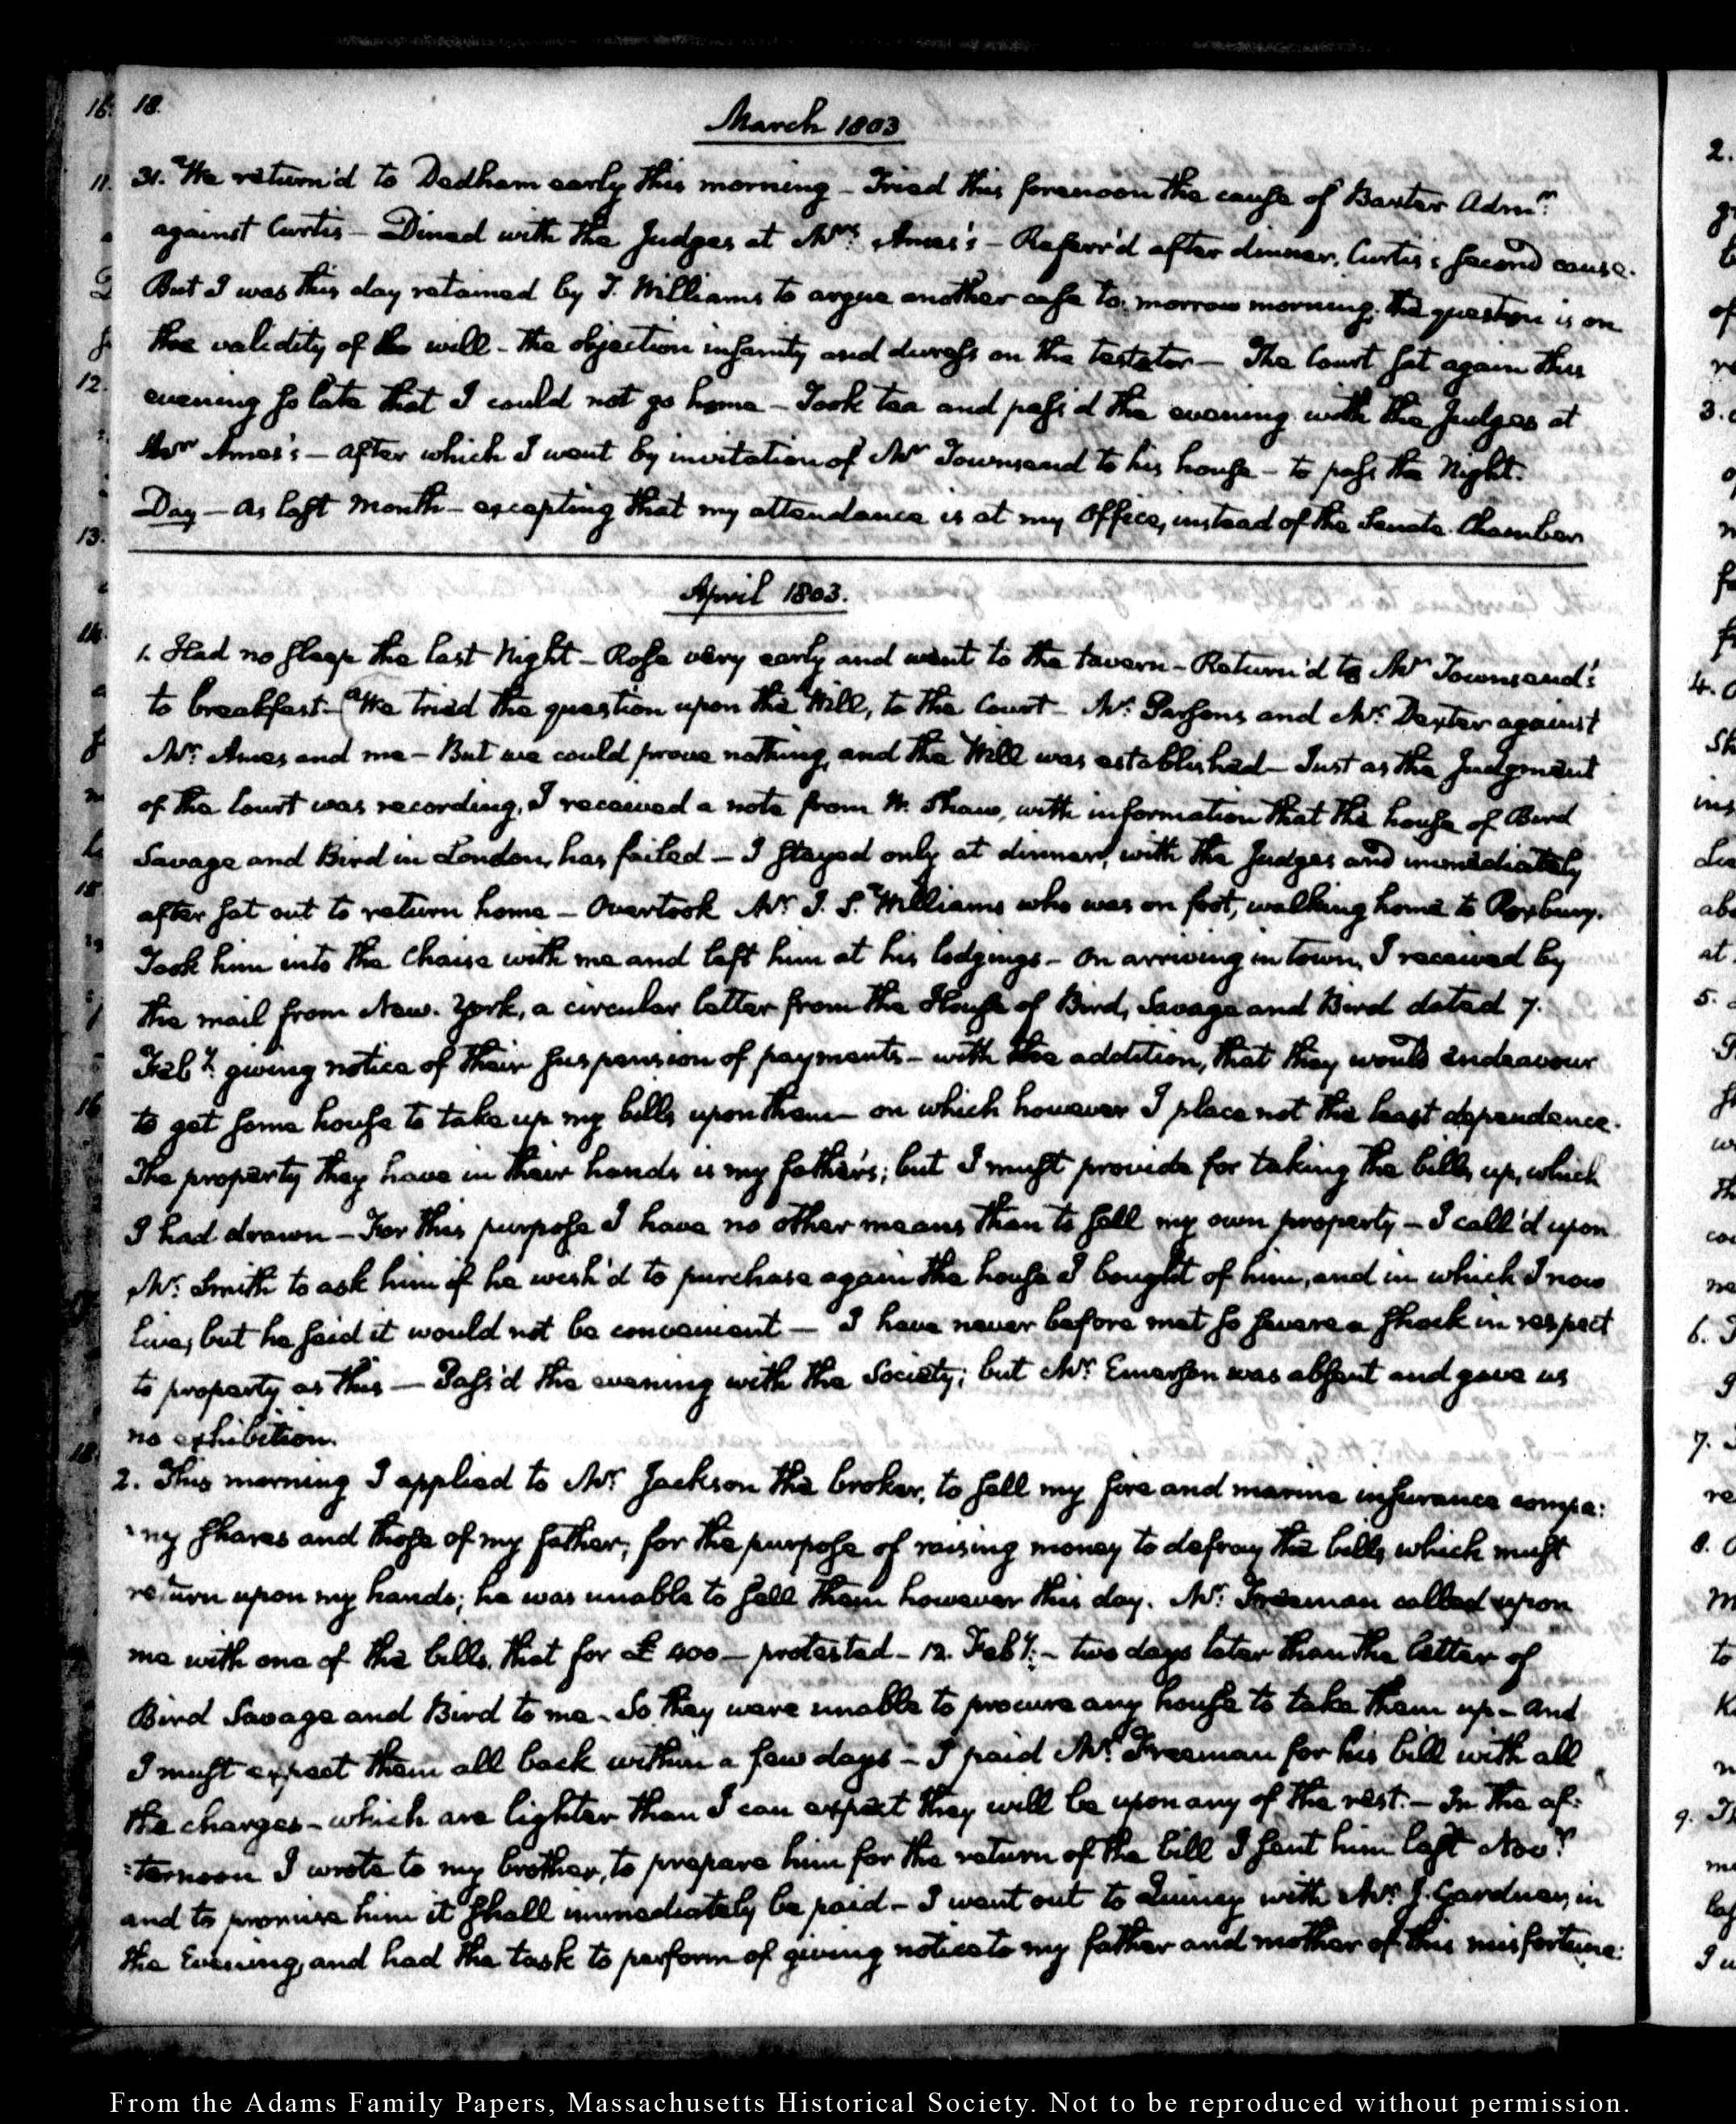 18.
March 1803
31. We return'd to Dedham early this morning – Tried this forenoon the cause of Baxter Admr.
against Curtis – Dined with the Judges at Mrs. Ames's – Referr'd after dinner, Curtis's second cause.
But I was this day retained by T. Williams to argue another case to-morrow morning; the question is on
the validity of the will – the objection insanity and duress on the testator – The Court sat again this
evening so late that I could not go home – Took tea and pass'd the evening with the Judges at
Ames's – after which I went by invitation of Mr. Townsend to his house – to pass the Night.
Day – As last month – excepting that my attendance is at my Office, instead of the Senate-Chamber
April 1803.
1. Had no sleep the last Night – Rose very early and went to the tavern – Return'd to Mr. Townsend's
to breakfast – We tried the question upon the Will, to the Court – Mr. Parsons and Mr. Dexter against
Mr. Ames and me – But we could prove nothing, and the Will was established – Just as the Judgment
of the Court was recording, I received a note from W. Shaw, with information that the house of Bird
Savage and Bird in London, has failed – I stayed only at dinner, with the Judges and immediately
after sat out to return home – Overtook Mr. J. S. Williams who was on foot, walking home to Roxbury.
Took him into the Chaise with me and left him at his lodgings – On arriving in town, I received by
the mail from New-York, a circular letter from the House of Bird, Savage and Bird dated 7.
Feby. giving notice of their suspension of payments – with the addition, that they would endeavour
to get some house to take up my bills upon them – on which however I place not the least dependence.
The property they have in their hands is my father's; but I must provide for taking the bills up, which
I had drawn – For this purpose I have no other means than to sell my own property – I call'd upon
Mr. Smith to ask him if he wish'd to purchase again the house I bought of him, and in which I now
live; but he said it would not be convenient – I have never before met so severe a shock in respect
to property as this – Pass'd the evening with the Society; but Mr. Emerson was absent and gave us
no exhibition.
2. This morning I applied to Mr. Jackson the broker, to sell my fire and marine insurance compa:
:ny shares and those of my father; for the purpose of raising money to defray the bills which must
return upon my hands; he was unable to sell them however this day. Mr. Freeman called upon
me with one of the bills, that for £400 – protested – 12. Feby. – two days later than the letter of
Bird Savage and Bird to me – So they were unable to procure any house to take them up – and
I must expect them all back within a few days – I paid Mr. Freeman for his bill with all
the charges – which are lighter than I can expect they will be upon any of the rest. – In the af:
:ternoon I wrote to my brother, to prepare him for the return of the bill I sent him last Novr.
and to promise him it shall immediately be paid – I went out to Quincy with Mr. J. Gardner, in
the Evening, and had the task to perform of giving notice to my father and mother of this misfortune:
From the Adams Family Papers, Massachusetts Historical Society. Not to be reproduced without permission.